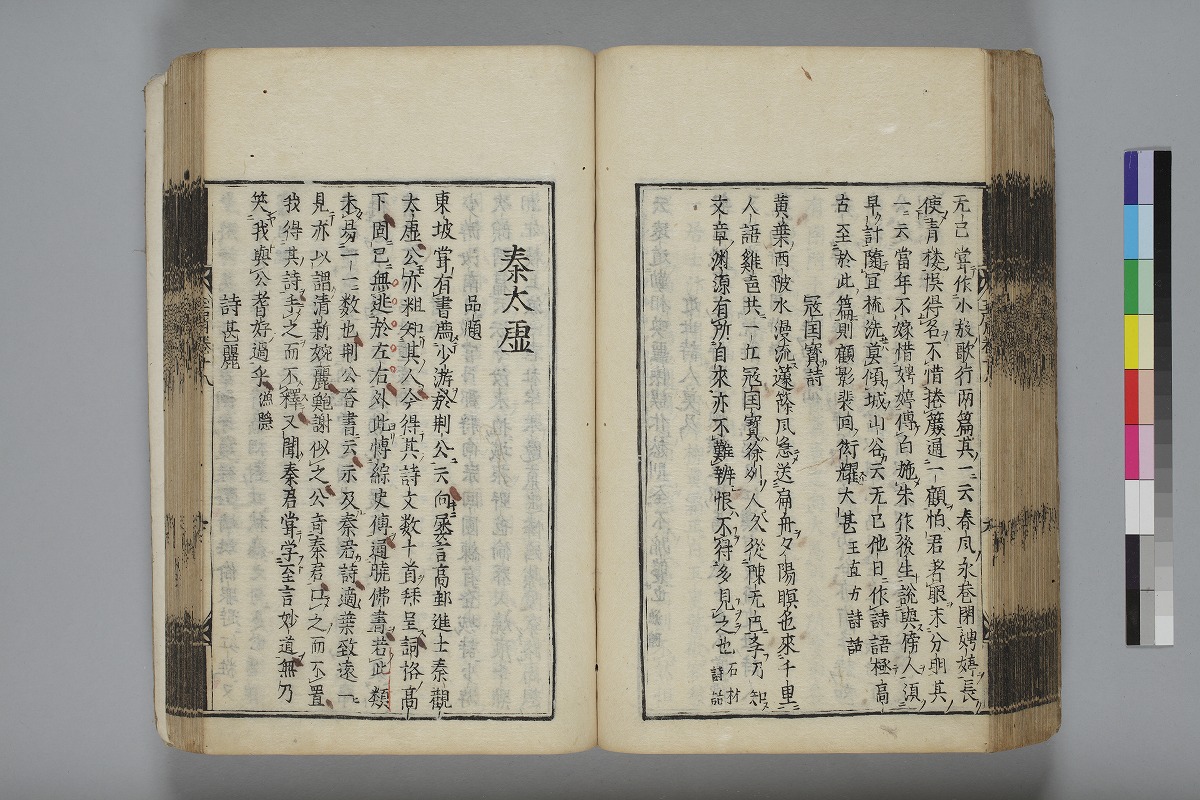 无己嘗作小放歌行兩篇其一云春風永巷閉娉婷長
使青樓悞得名不惜捲簾通一顧怕君著眼未分明其
一云當年不嫁惜娉婷傅白施朱作後生說與傍人須
早計隨宜梳洗莫傾城山谷云无己他日作詩語極高
古至於此篇則顧影裴回衒耀太甚 王直方詩話
冠国寶詩
黄葉西陂水漫流籧篨風急送扁舟夕陽暝色來千里
人語雞聲共一丘冠国寶徐列人久從陳无己學乃知
文章渊源有所自來亦不難辨恨不得多見之也 石林詩話
秦太虛
品題
東坡嘗有書薦少游於荆公云向屢言高郵進士秦觀
太虛公亦粗知其人今得其詩文数十首拜呈詞格高
下固已無逃於左右外此博綜史傳通曉佛書若此類
未易一一数也荆公荅書云示及秦君詩適葉致遠一
見亦以謂清新婉麗鮑謝似之公奇秦君口之而不置
我得其詩手之而不釋又聞秦君嘗学至言妙道無乃
笑我與公嗜好過乎 漁隠
詩甚麗